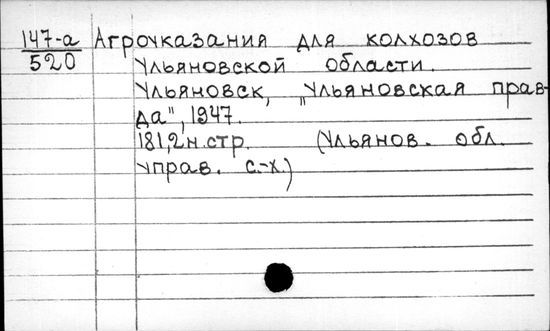 147-а Агроуказания для колхозов
520 Ульяновской области.
Ульяновск, "Ульяновская прав-
да", 1947.
181,2 н.стр. (Ульянов. обл.
управ. с.-х.)